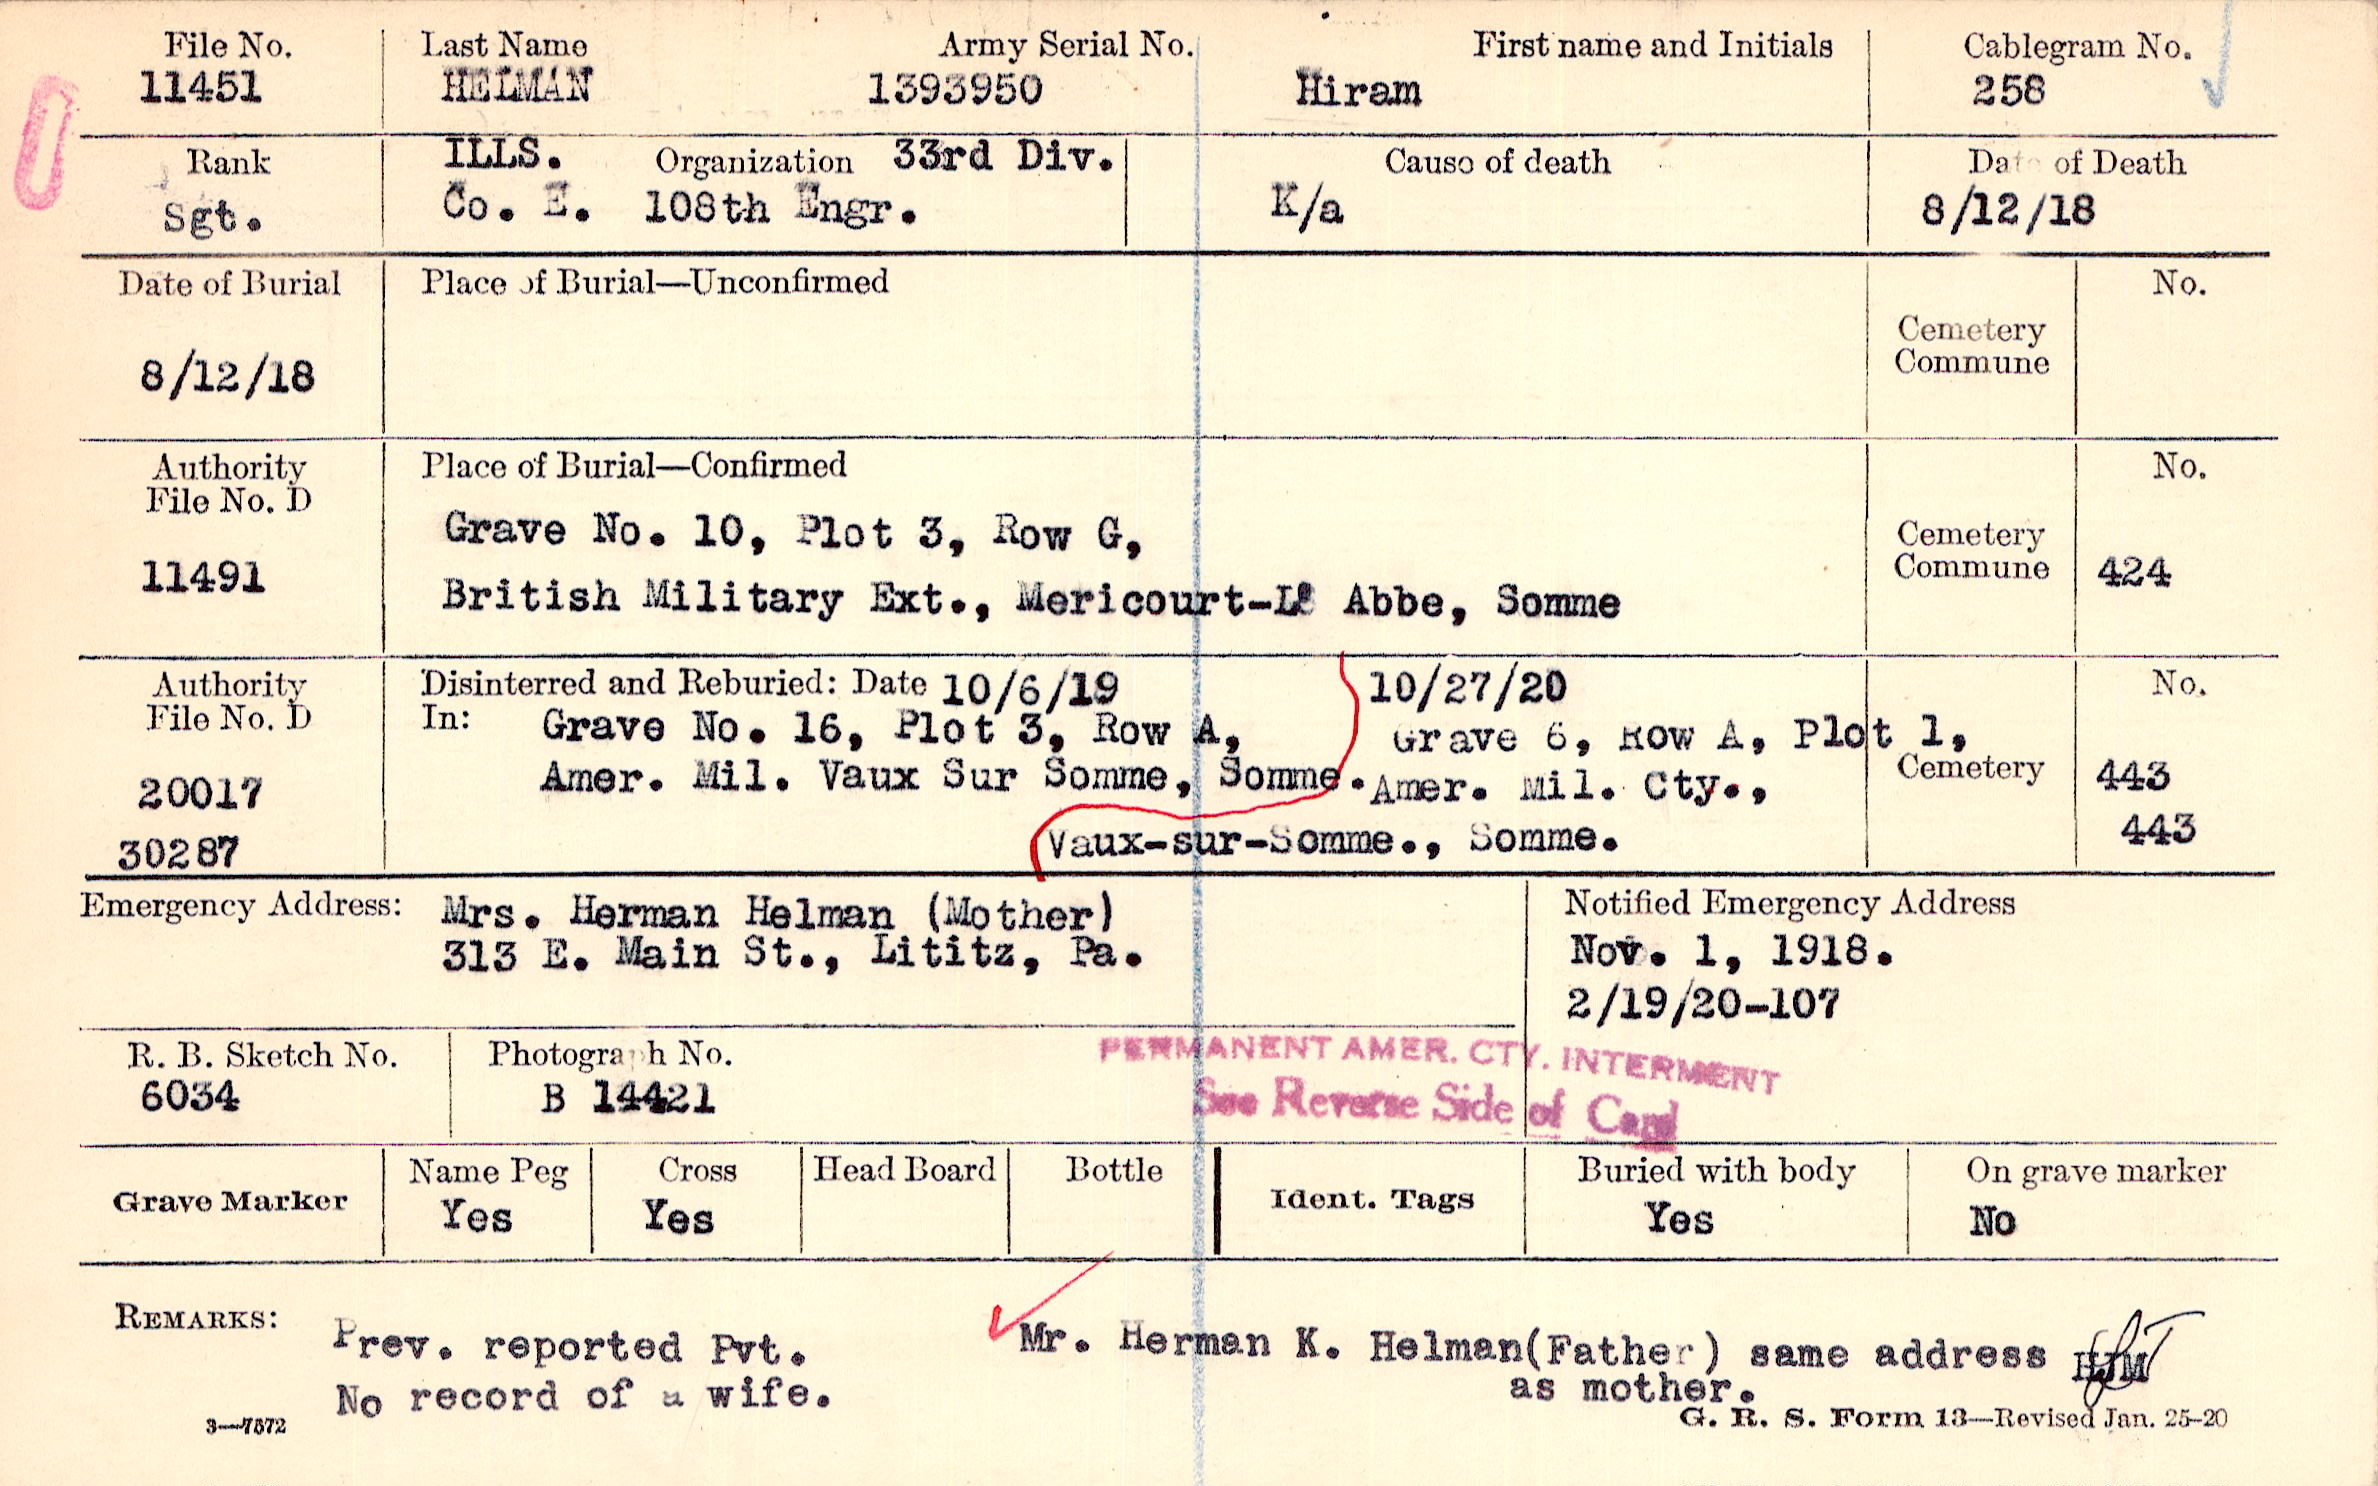 File No. Last Name Army Serial No. First name and Initials Cablegram No.
11451 HELMAN 1393950 Hiram 258
Rank ILLS. Organization 33rd Div. Cause of death Date of Death
Sgt. Co. E. 108th Engr. K/a 8/12/18
Date of Burial Place of Burial—Unconfirmed No.
Cemetery
Commune
8/12/18
Authority Place of Burial—Confirmed No.
File No. D
Grave No. 10, Plot 3, Row G, Cemetery
11491 Commune 424
British Military Ext., Mericourt-L' Abbe, Somme
Authority Disinterred and Reburied: Date 10/6/19 10/27/20 No.
File No. D In: Grave No. 16, Plot 3, Row A, Grave 6, Row A, Plot 1,
20017 Amer. Mil. Vaux Sur Somme, Somme. Amer. Mil. Cty., Cemetery 443
30287 Vaux-sur-Somme., Somme. 443
Emergency Address: Mrs. Herman Helman (Mother) Notified Emergency Address
313 E. Main St., Lititz, Pa. Nov. 1, 1918.
2/19/20-107
R. B. Sketch No. Photograph No. PERMANENT AMER. CTY. INTERMENT
6034 B 14421 See Reverse Side of Card
Grave Marker Name Peg Cross Head Board Bottle Ident. Tags Buried with body On grave marker
Yes Yes Yes No
REMARKS: Prev. reported Pvt. Mr. Herman K. Helman(Father) same address HJM
No record of a wife. as mother.
3—7572 G. R. S. Form 13—Revised Jan. 25-20